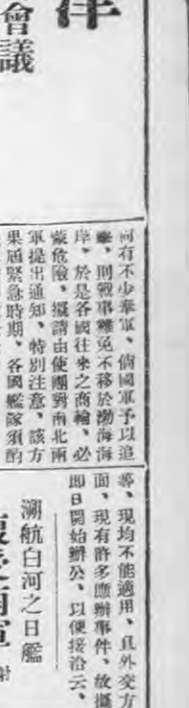 會議
尚有不少奉軍、倘國軍予以追
擊、則戰事難免不移於渤海海
岸、於是各國往來之商輪、必
蒙危險、擬請由使團對南北兩
軍提出通知、特別注意、該方
果屆緊急時期、各國艦隊須酌
等、現均不能適用、且外交方
面、現有許多應辦事件、故擬
即日開始辦公、以便接洽云、
溯航白河之日艦